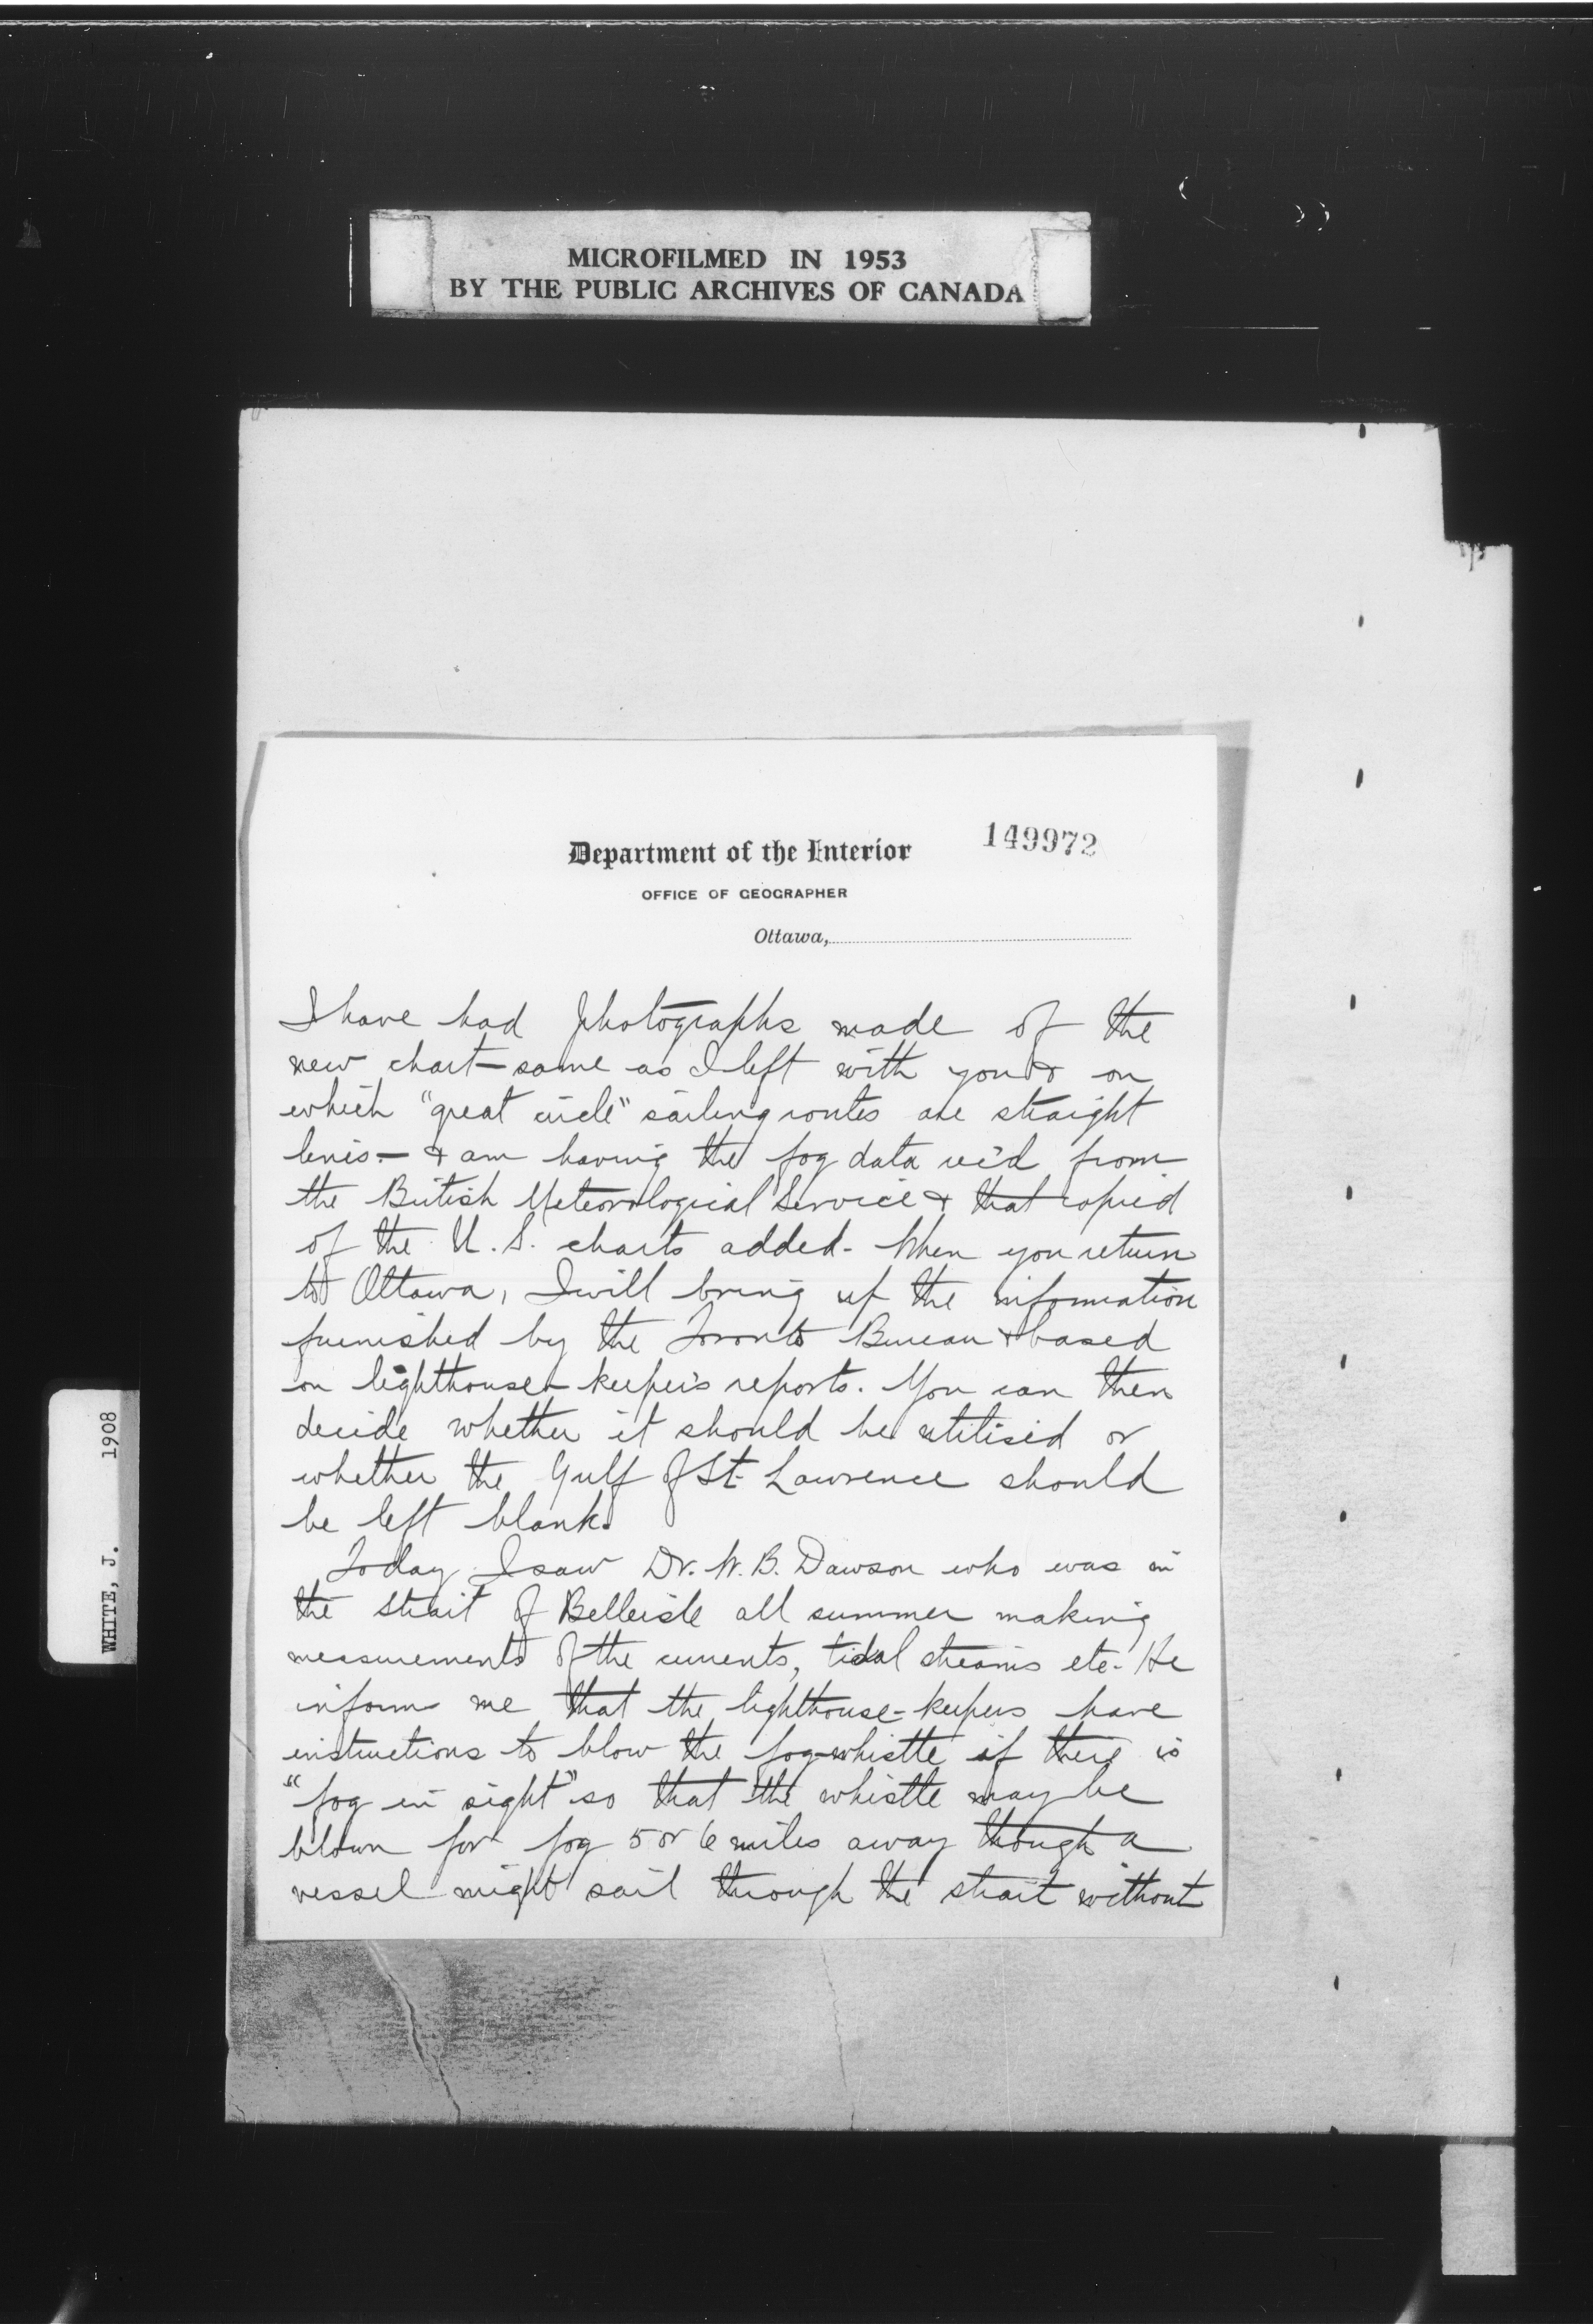 MICROFILMED IN 1953
BY THE PUBLIC ARCHIVES OF CANADA
149972
Department of the Interior
OFFICE OF GEOGRAPHER
Ottawa,
I have had photographs made of the
new chart - same as I left with you & on
which "great circle" sailing routes are straight
lines - & am having the fog data rec'd from
the British Meteorological Service & that copied
of the U.S. charts added. When you return
to Ottawa, I will bring up the information
furnished by the Toronto Bureau & based
on lighthouse-keeper's reports. You can then
decide whether it should be utilised or
whether the Gulf of St. Lawrence should
be left blank.
Today I saw Dr. W. B. Dawson who was in
the Strait of Belleisle all summer making
measurements of the currents, tidal streams etc. He
informs me that the lighthouse-keepers have
instructions to blow the fog-whistle if there is
"fog in sight" so that the whistle may be
blown for fog 5 or 6 miles away though a
vessel might sail through the strait without
WHITE, J. 1908